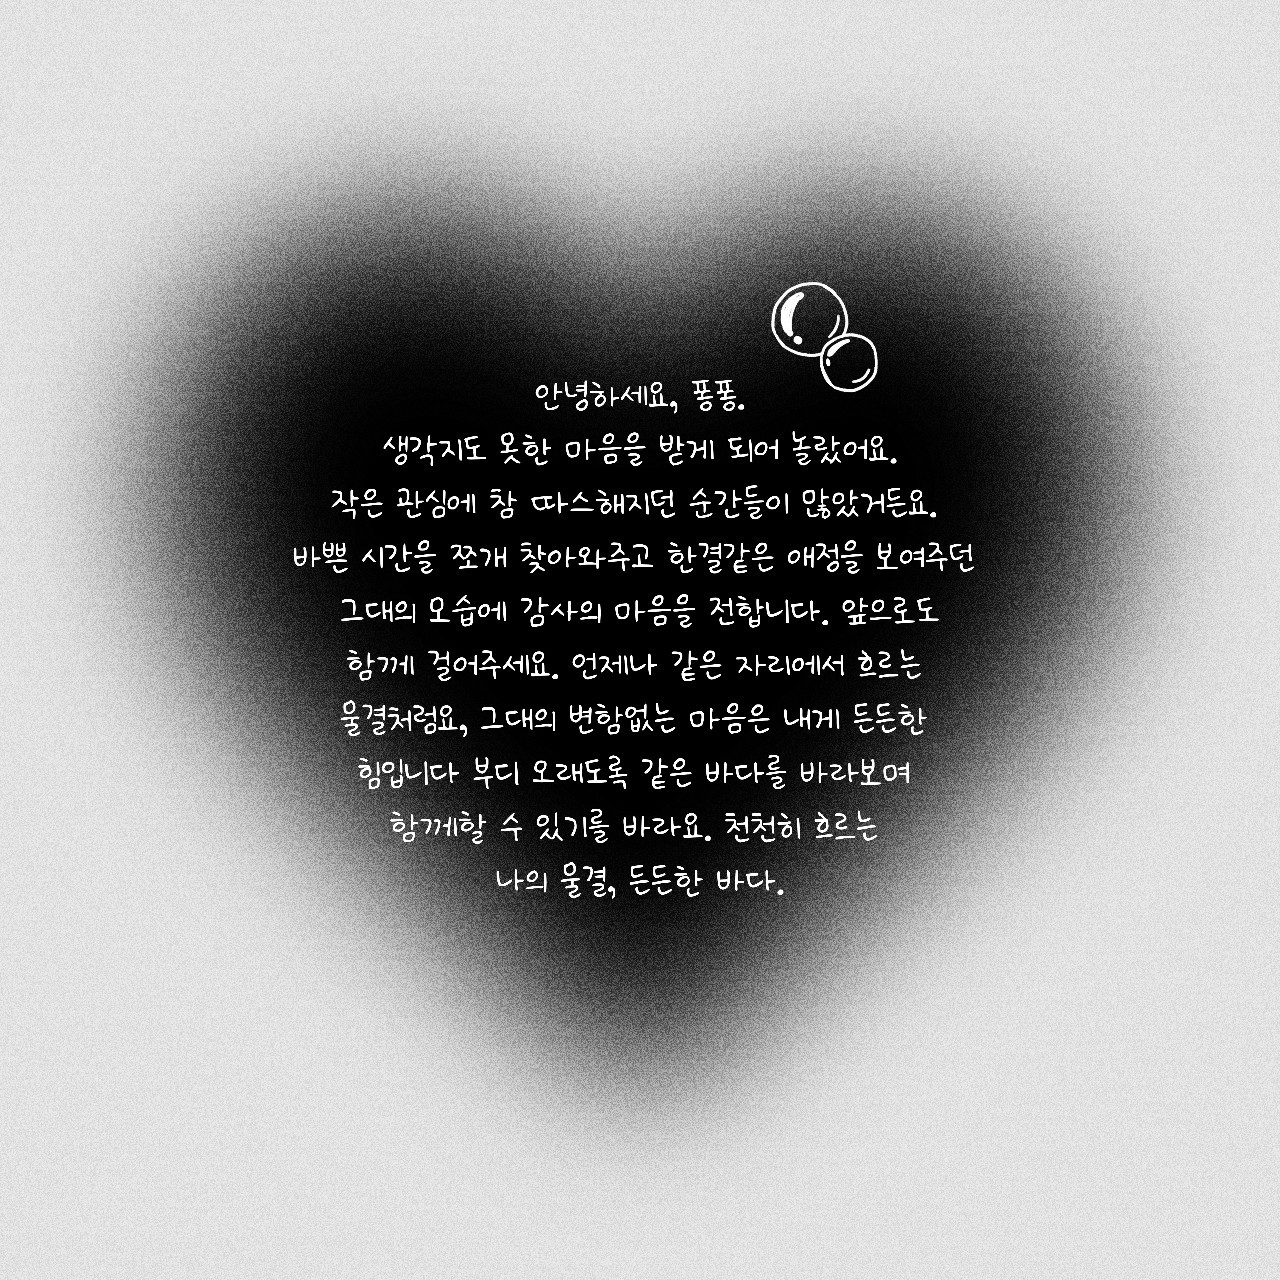 안녕하세요, 퐁퐁.
생각지도 못한 마음을 받게 되어 놀랐어요.
작은 관심에 참 따스해지던 순간들이 많았거든요.
바쁜 시간을 쪼개 찾아와주고 한결같은 애정을 보여주던
그대의 모습에 감사의 마음을 전합니다. 앞으로도
함께 걸어주세요. 언제나 같은 자리에서 흐르는
물결처럼요, 그대의 변함없는 마음은 내게 든든한
힘입니다 부디 오래도록 같은 바다를 바라보며
함께할 수 있기를 바라요. 천천히 흐르는
나의 물결, 든든한 바다.